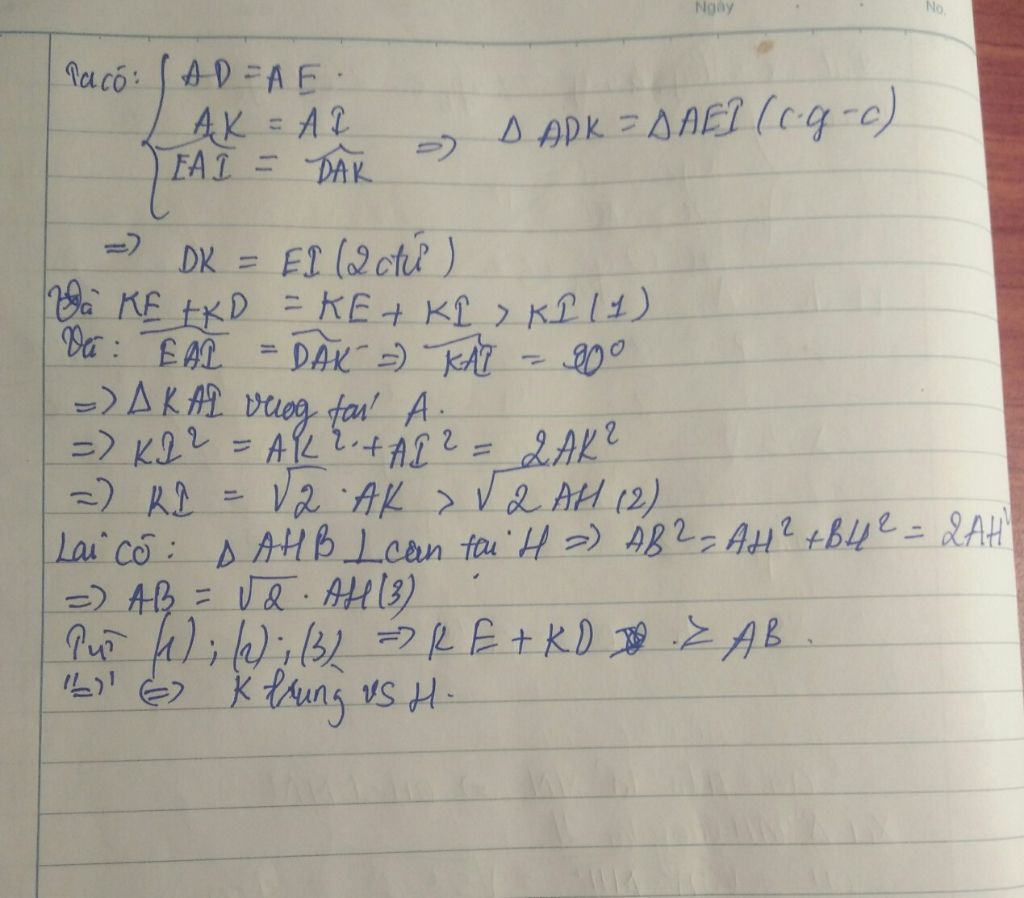 Ngày No.
Ta có: { AD = AE.
AK = AI
\widehat{EAI} = \widehat{DAK} => Δ ADK = ΔAEI (c.g-c)
=> DK = EI (2 ctứ)
Và KE + KD = KE + KI > KI (1)
Và: \widehat{EAI} = \widehat{DAK} => \widehat{KAI} = 90°
=> Δ KAI vuog tại A.
=> KI² = AK² + AI² = 2AK²
=> KI = √2 . AK > √2 AH (2)
Lại có: Δ AHB ⊥ cân tại H => AB² = AH² + BH² = 2AH²
=> AB = √2 . AH (3)
Từ (1); (2); (3) => KE + KD ≥ AB.
"=" <=> K trùng vs H.